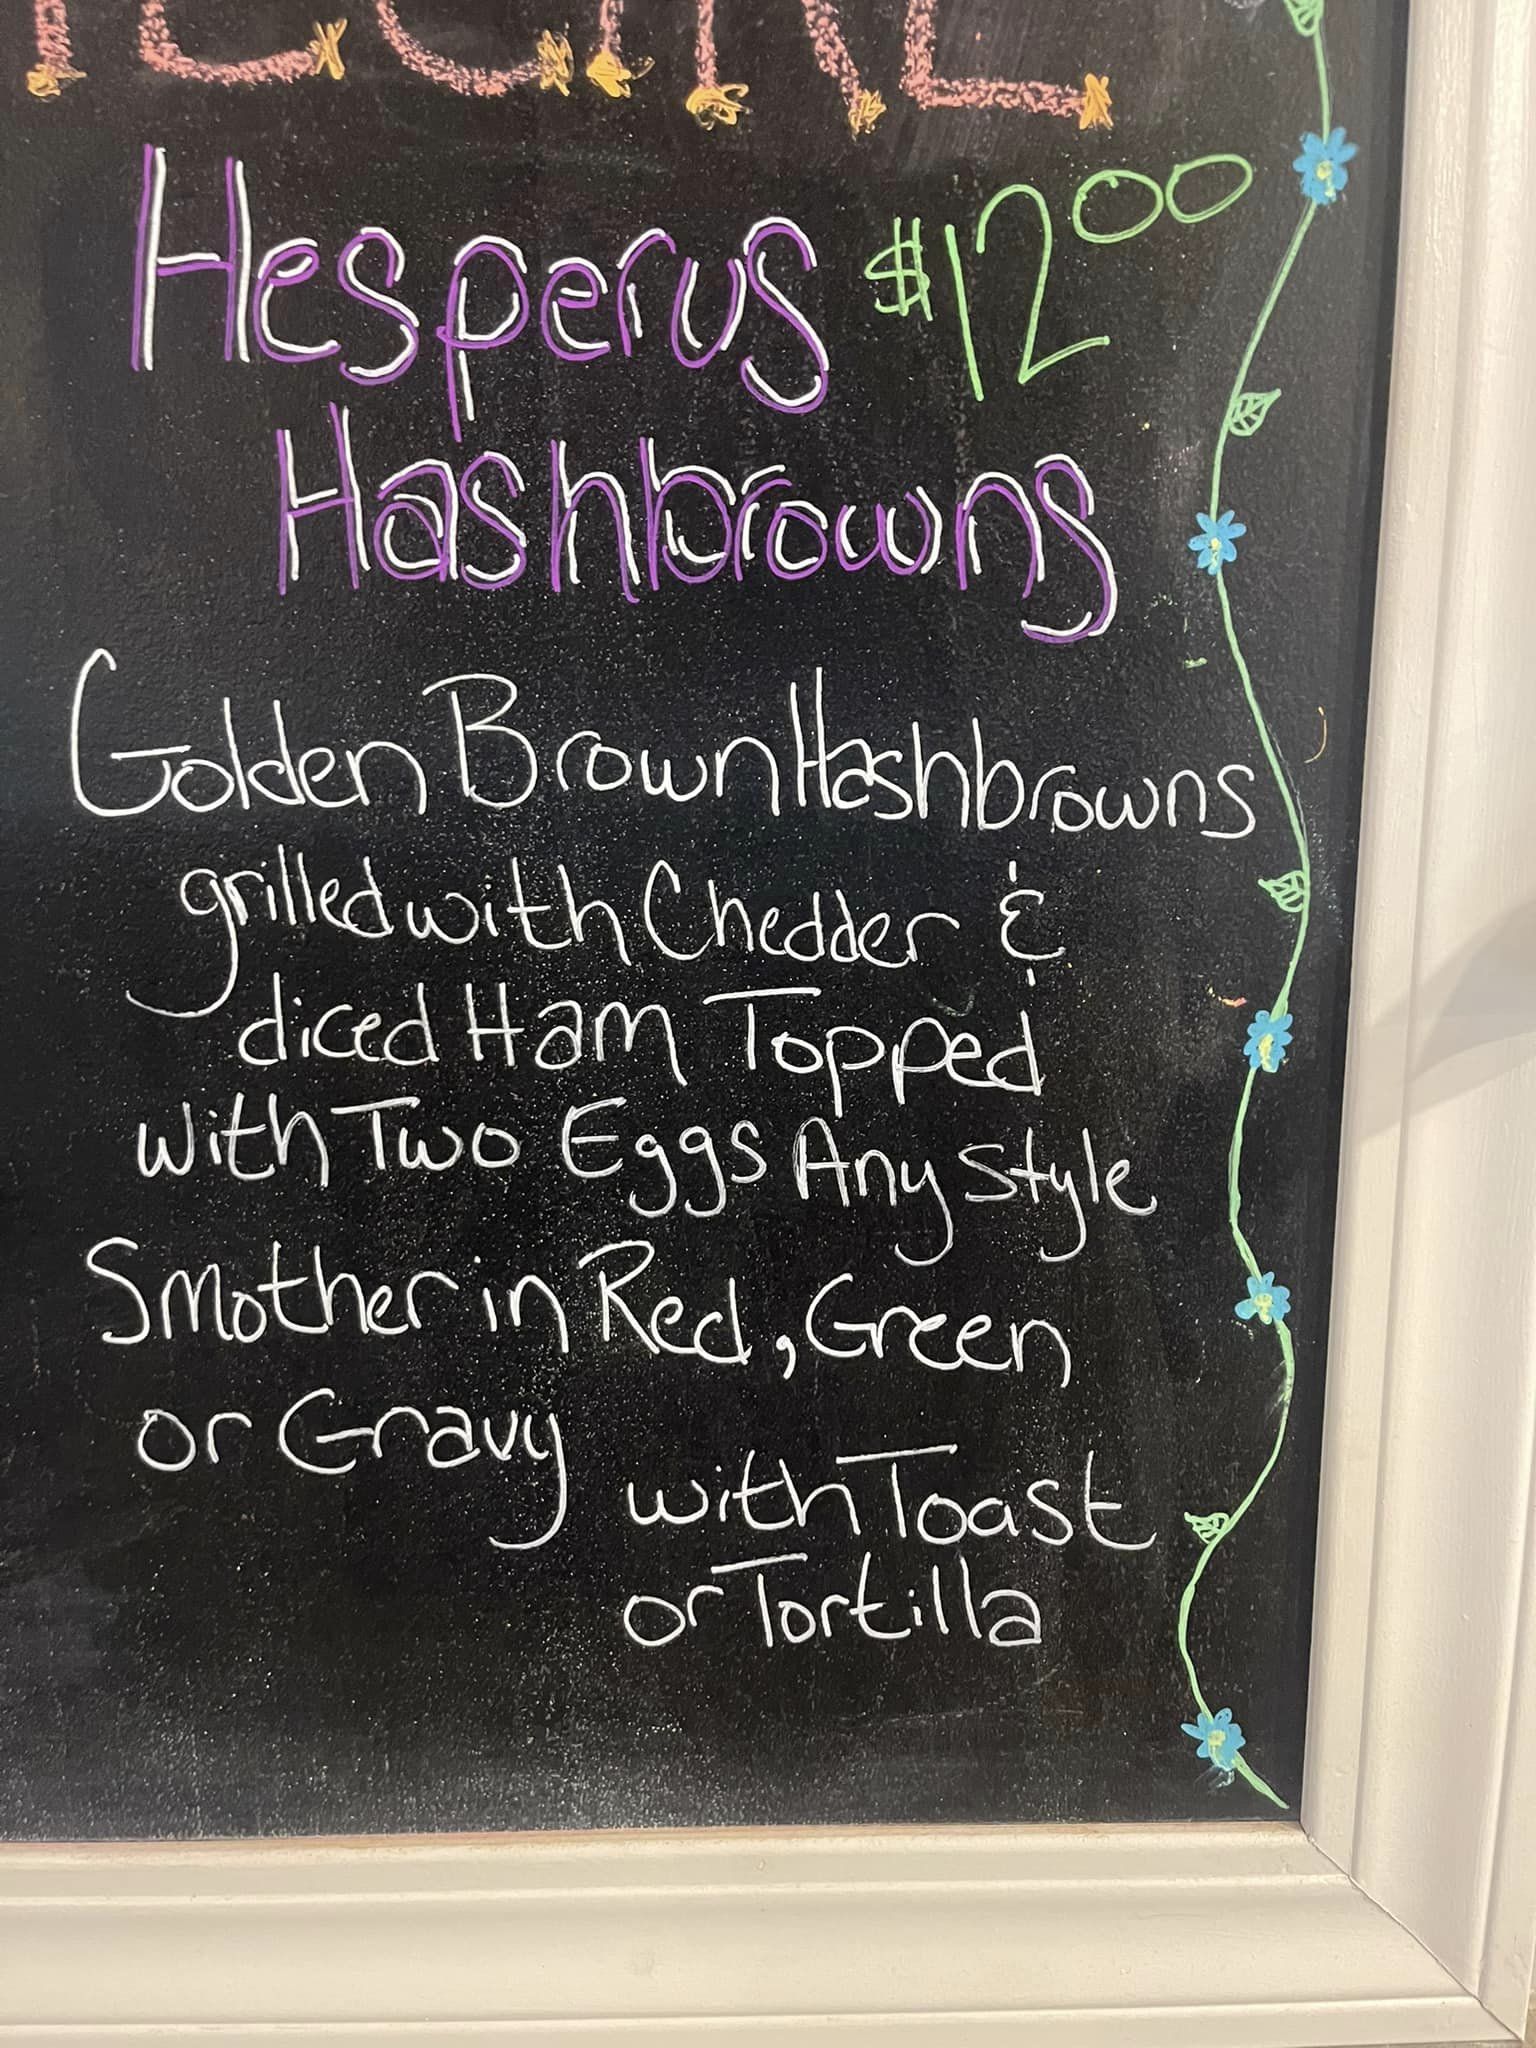 Hesperus $12.00
Hashbrowns
Golden Brown Hashbrowns
grilled with Chedder &
diced Ham Topped
with Two Eggs Any style
Smother in Red, Green
or Gravy
with Toast
or Tortilla